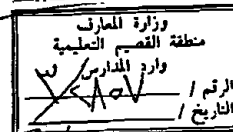 وزارة المعارف
منطقة القصيم التعليمية
وارد المدارس
الرقم / ٢٨٥٧
التاريخ /